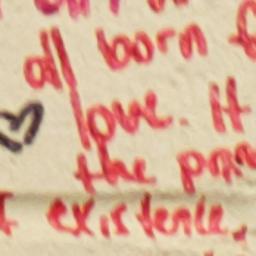 all born
love. It
the prin
existence.